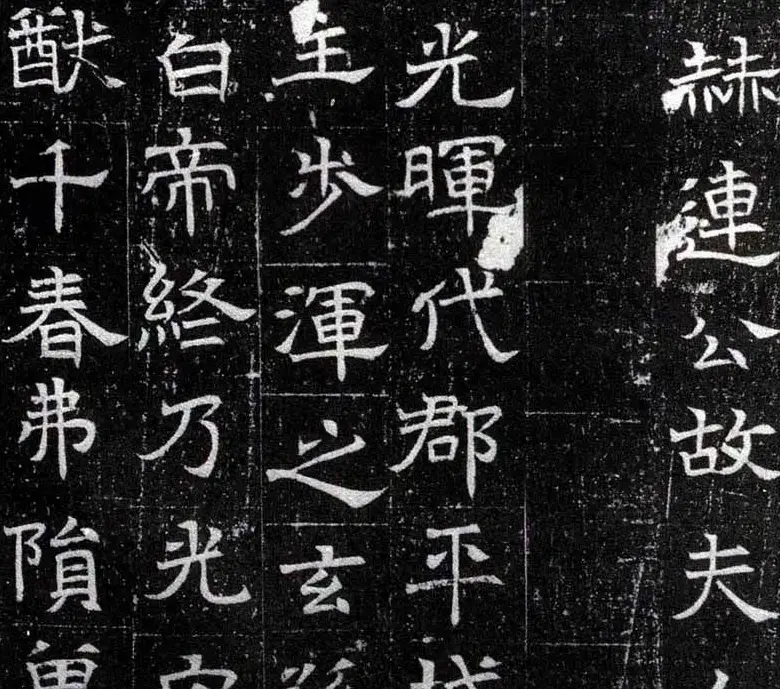 赫連公故夫人
光暉代郡平城
主步渾之玄孫
白帝終乃光
猷千春弗隕曾